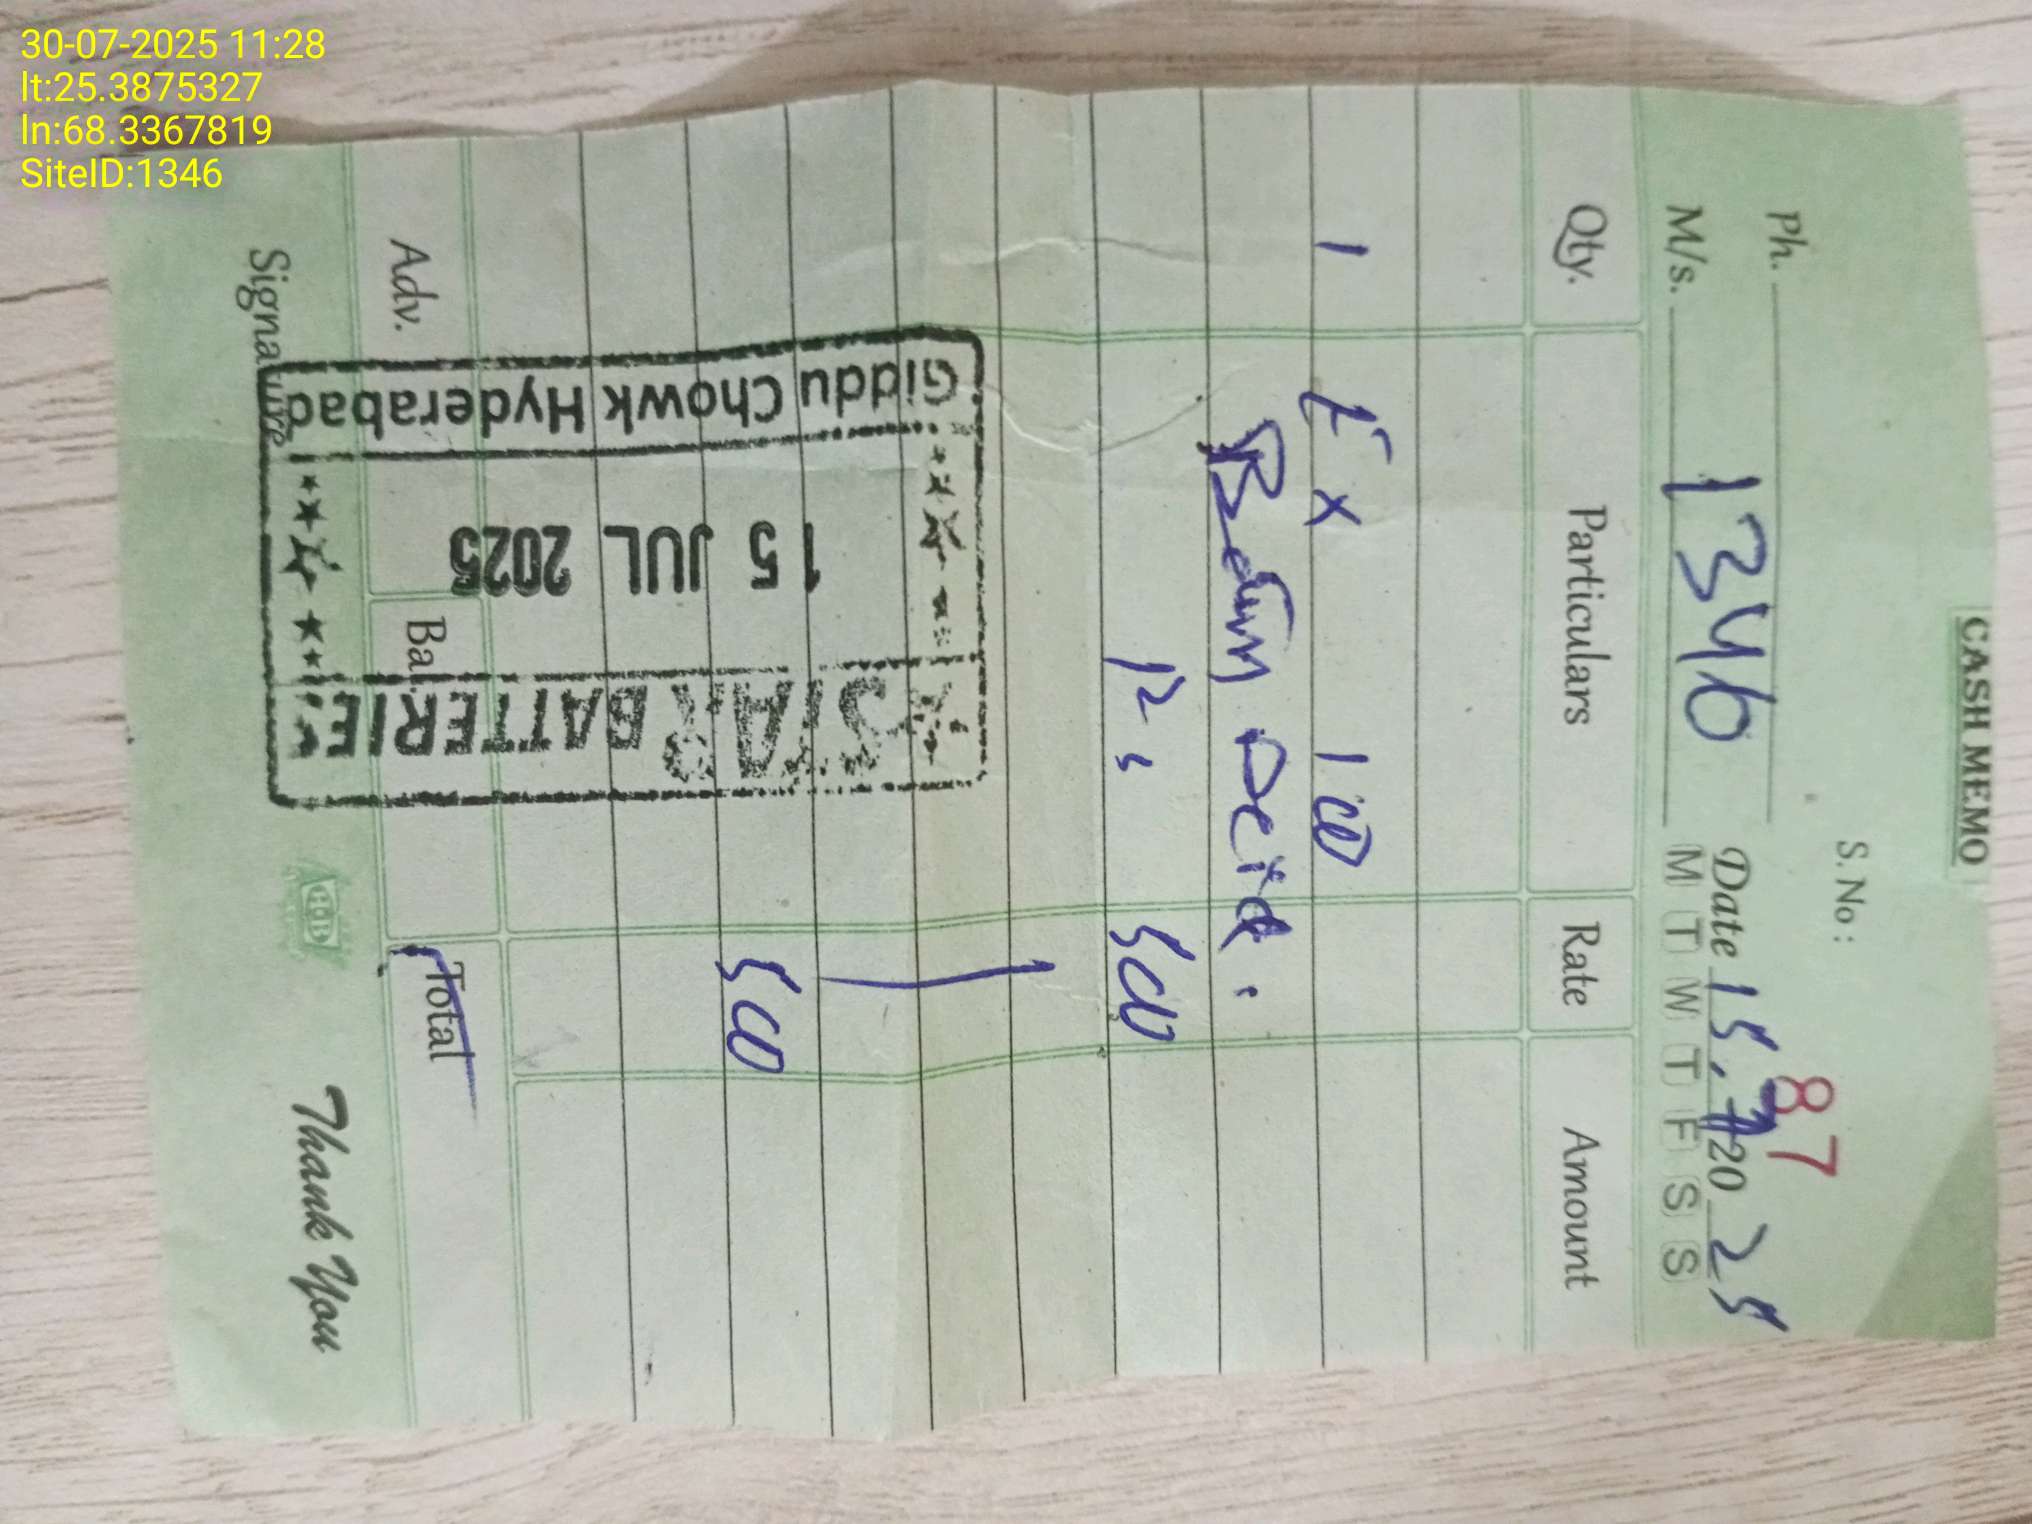 30-07-2025 11:28
lt:25.3875327
ln:68.3367819
SiteID:1346
CASH MEMO
S. No:
87
Ph.
Date 15.7 2025
M/s. 1346
M T W T F S S
Qty. Particulars Rate Amount
1 Ex 100
500
500
Adv. Bal. Total
Signature
Thank You
STAR BATTERIE
15 JUL 2025
Giddu Chowk Hyderabad